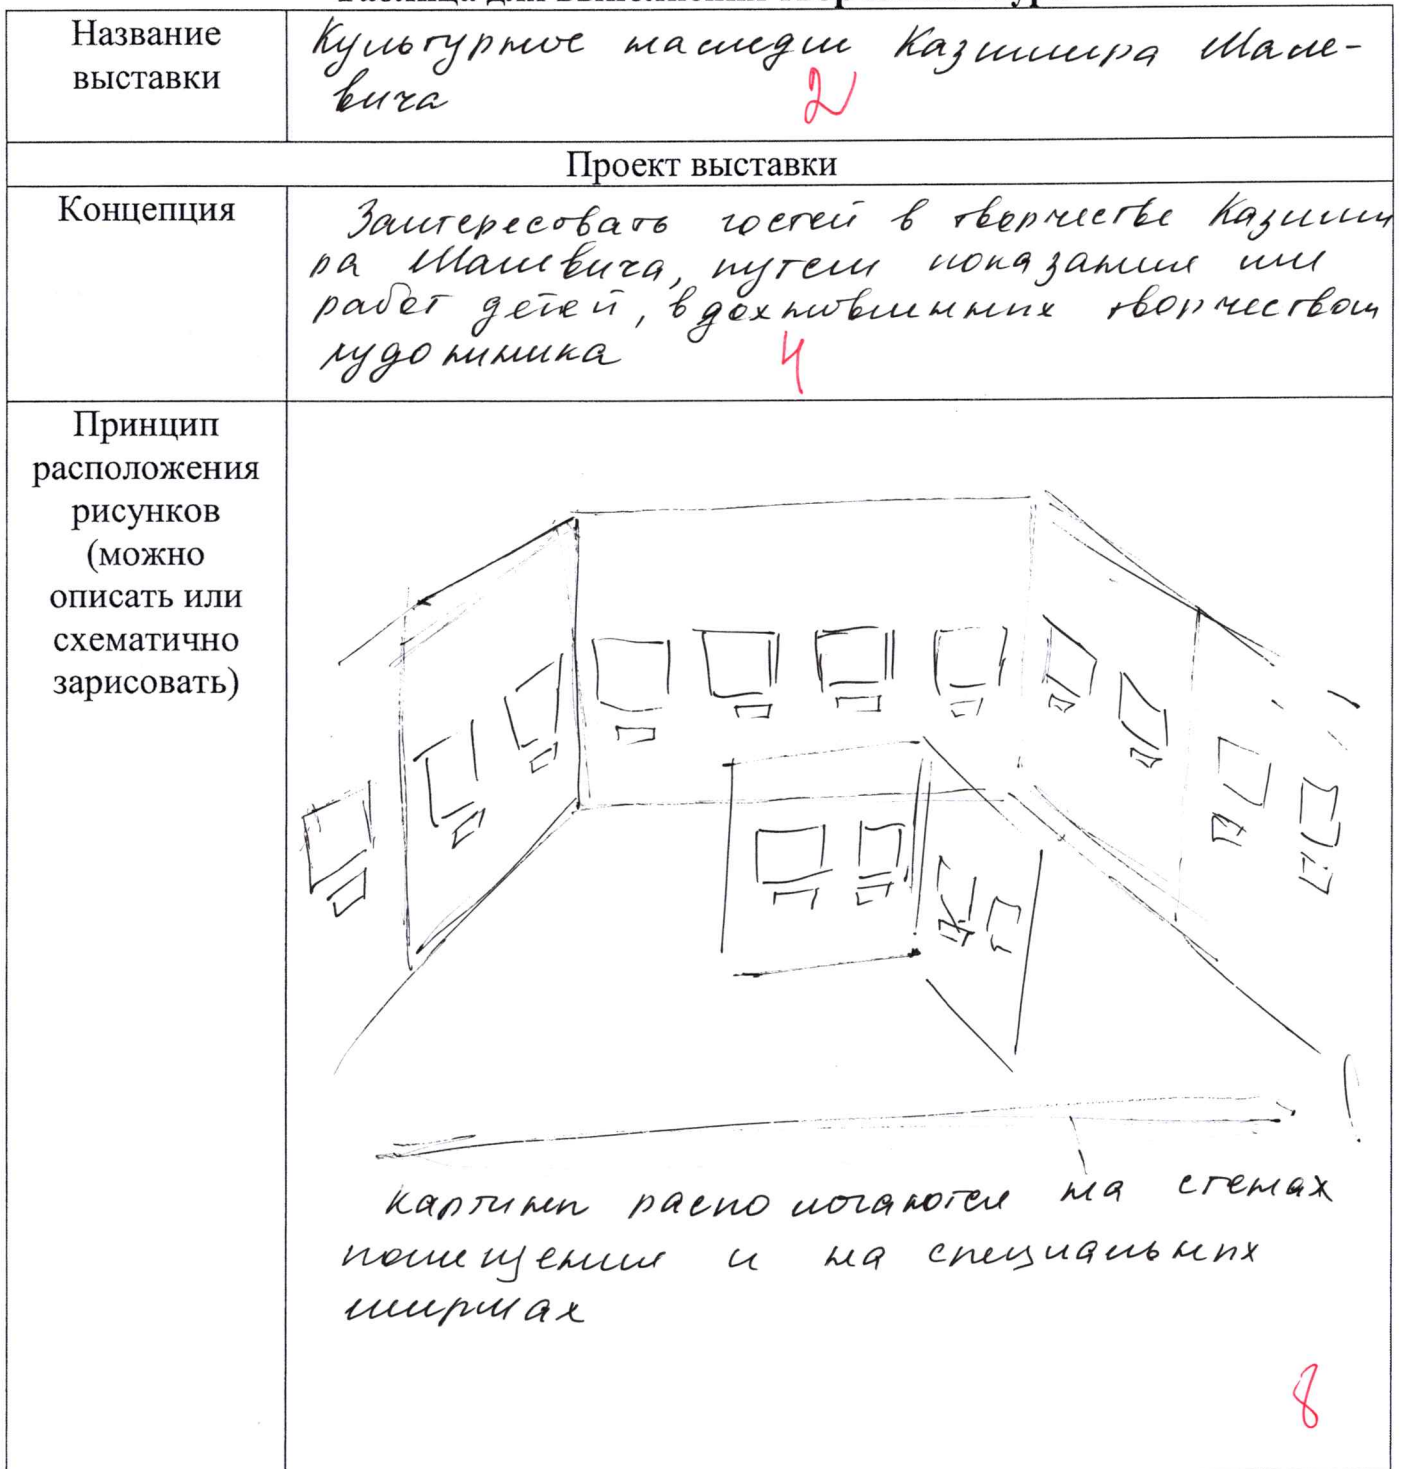 Название
выставки
Культурное наследие Казимира Мале-
вича
2
Проект выставки
Концепция
Заитересовать гостей в творчестве Казими
ра Малевича, путем показания им
работ детей, вдохновленных творчеством
художника
4
Принцип
расположения
рисунков
(можно
описать или
схематично
зарисовать)
картины распологаются на стенах
помещения и на специальных
ширмах
8